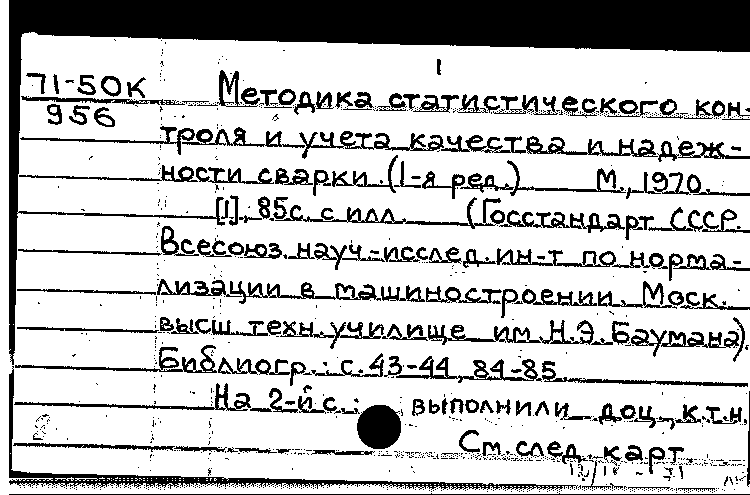 I
71-50К Методика статистического кон-
956
троля и учета качества и надеж-
ности сварки. (I-я ред.) М., 1970.
[I], 85с. с илл. (Госстандарт СССР.
Всесоюз. науч.-исслед. ин-т по норма-
лизации в машиностроении. Моск.
высш техн. училище им. Н.Э. Баумана).
Библиогр.: с. 43-44, 84-85
На 2-й с.: выполнили доц., к.т.н.
См. след. карт.